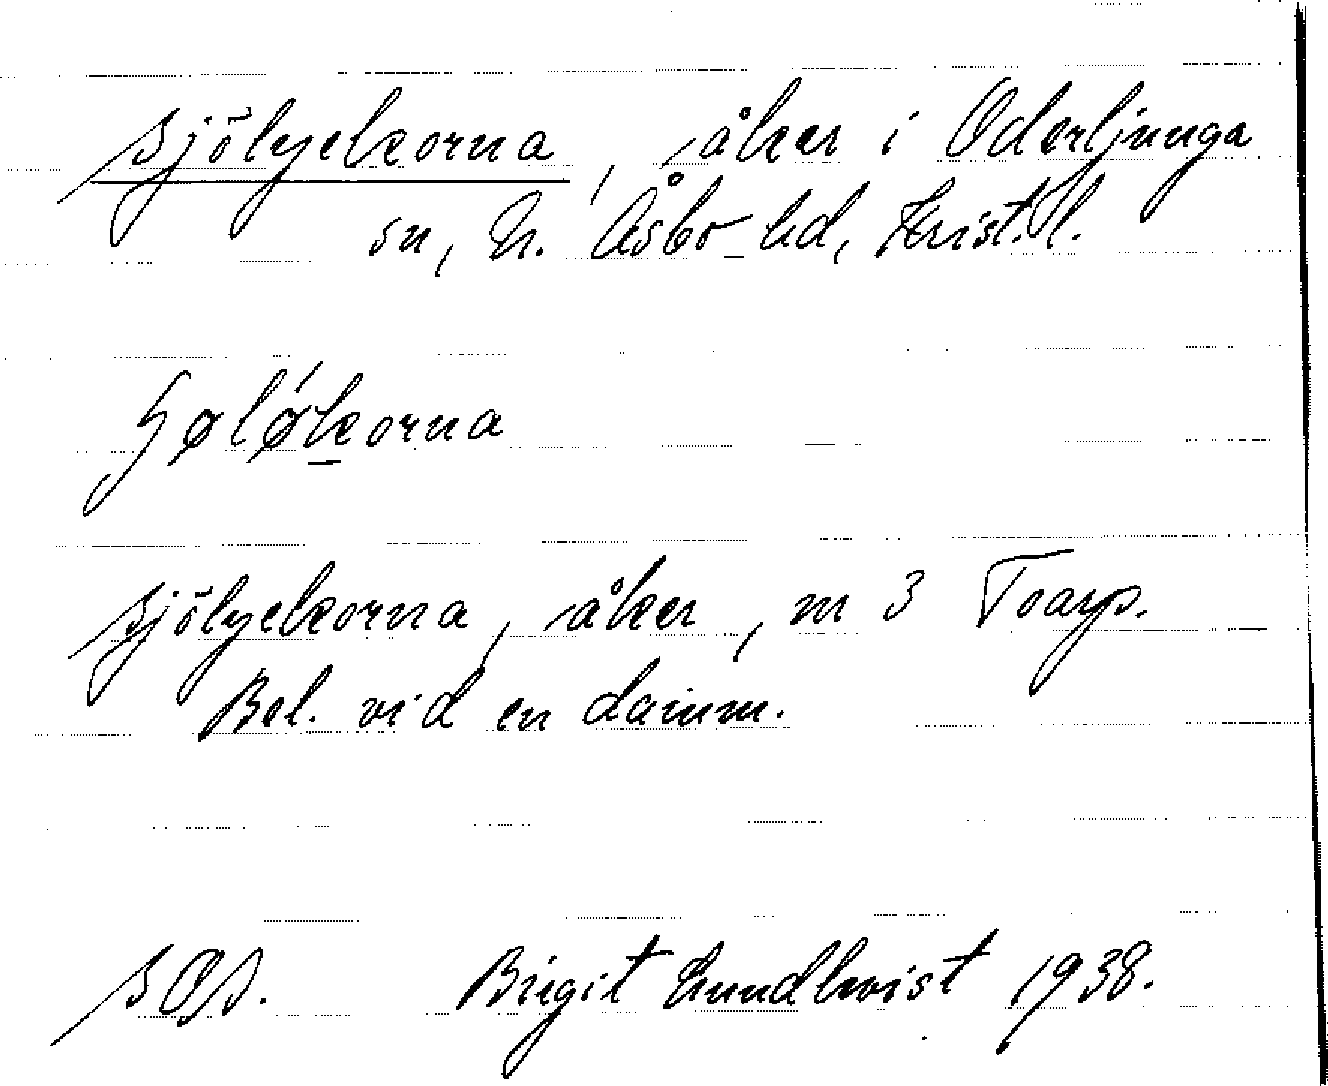 Sjölyckorna, åker i Oderljunga
sn, N. Åsbo hd, Krist. l.
ʃøløkorna
Sjölyckorna, åker, nr 3 Toarp.
Bel. vid en damm.
Birgit Lundkvist 1938.